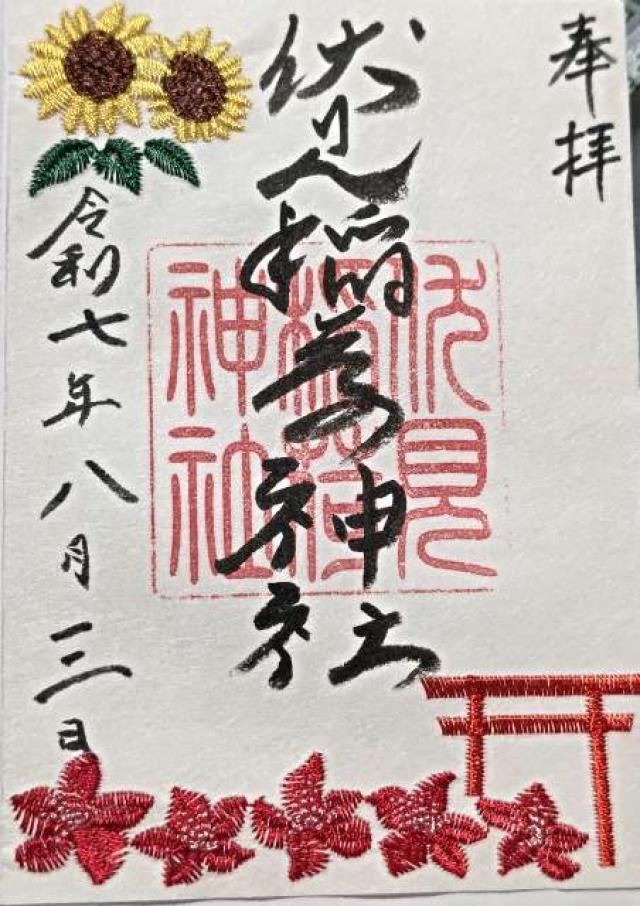 奉拝
伏見稲荷神社
伏見
稲荷
神社
令和七年八月三日